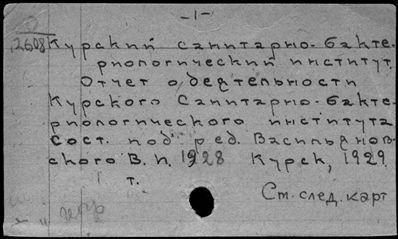 -1-
12608 Курский санитарно-бакте-
риологический институт.
Отчет о деятельности
Курского Санитарно-бакте-
риологического института
Сост. под ред. Васильянов-
ского В.П. 1928 Курск, 1929
1 т.
См. след. карт